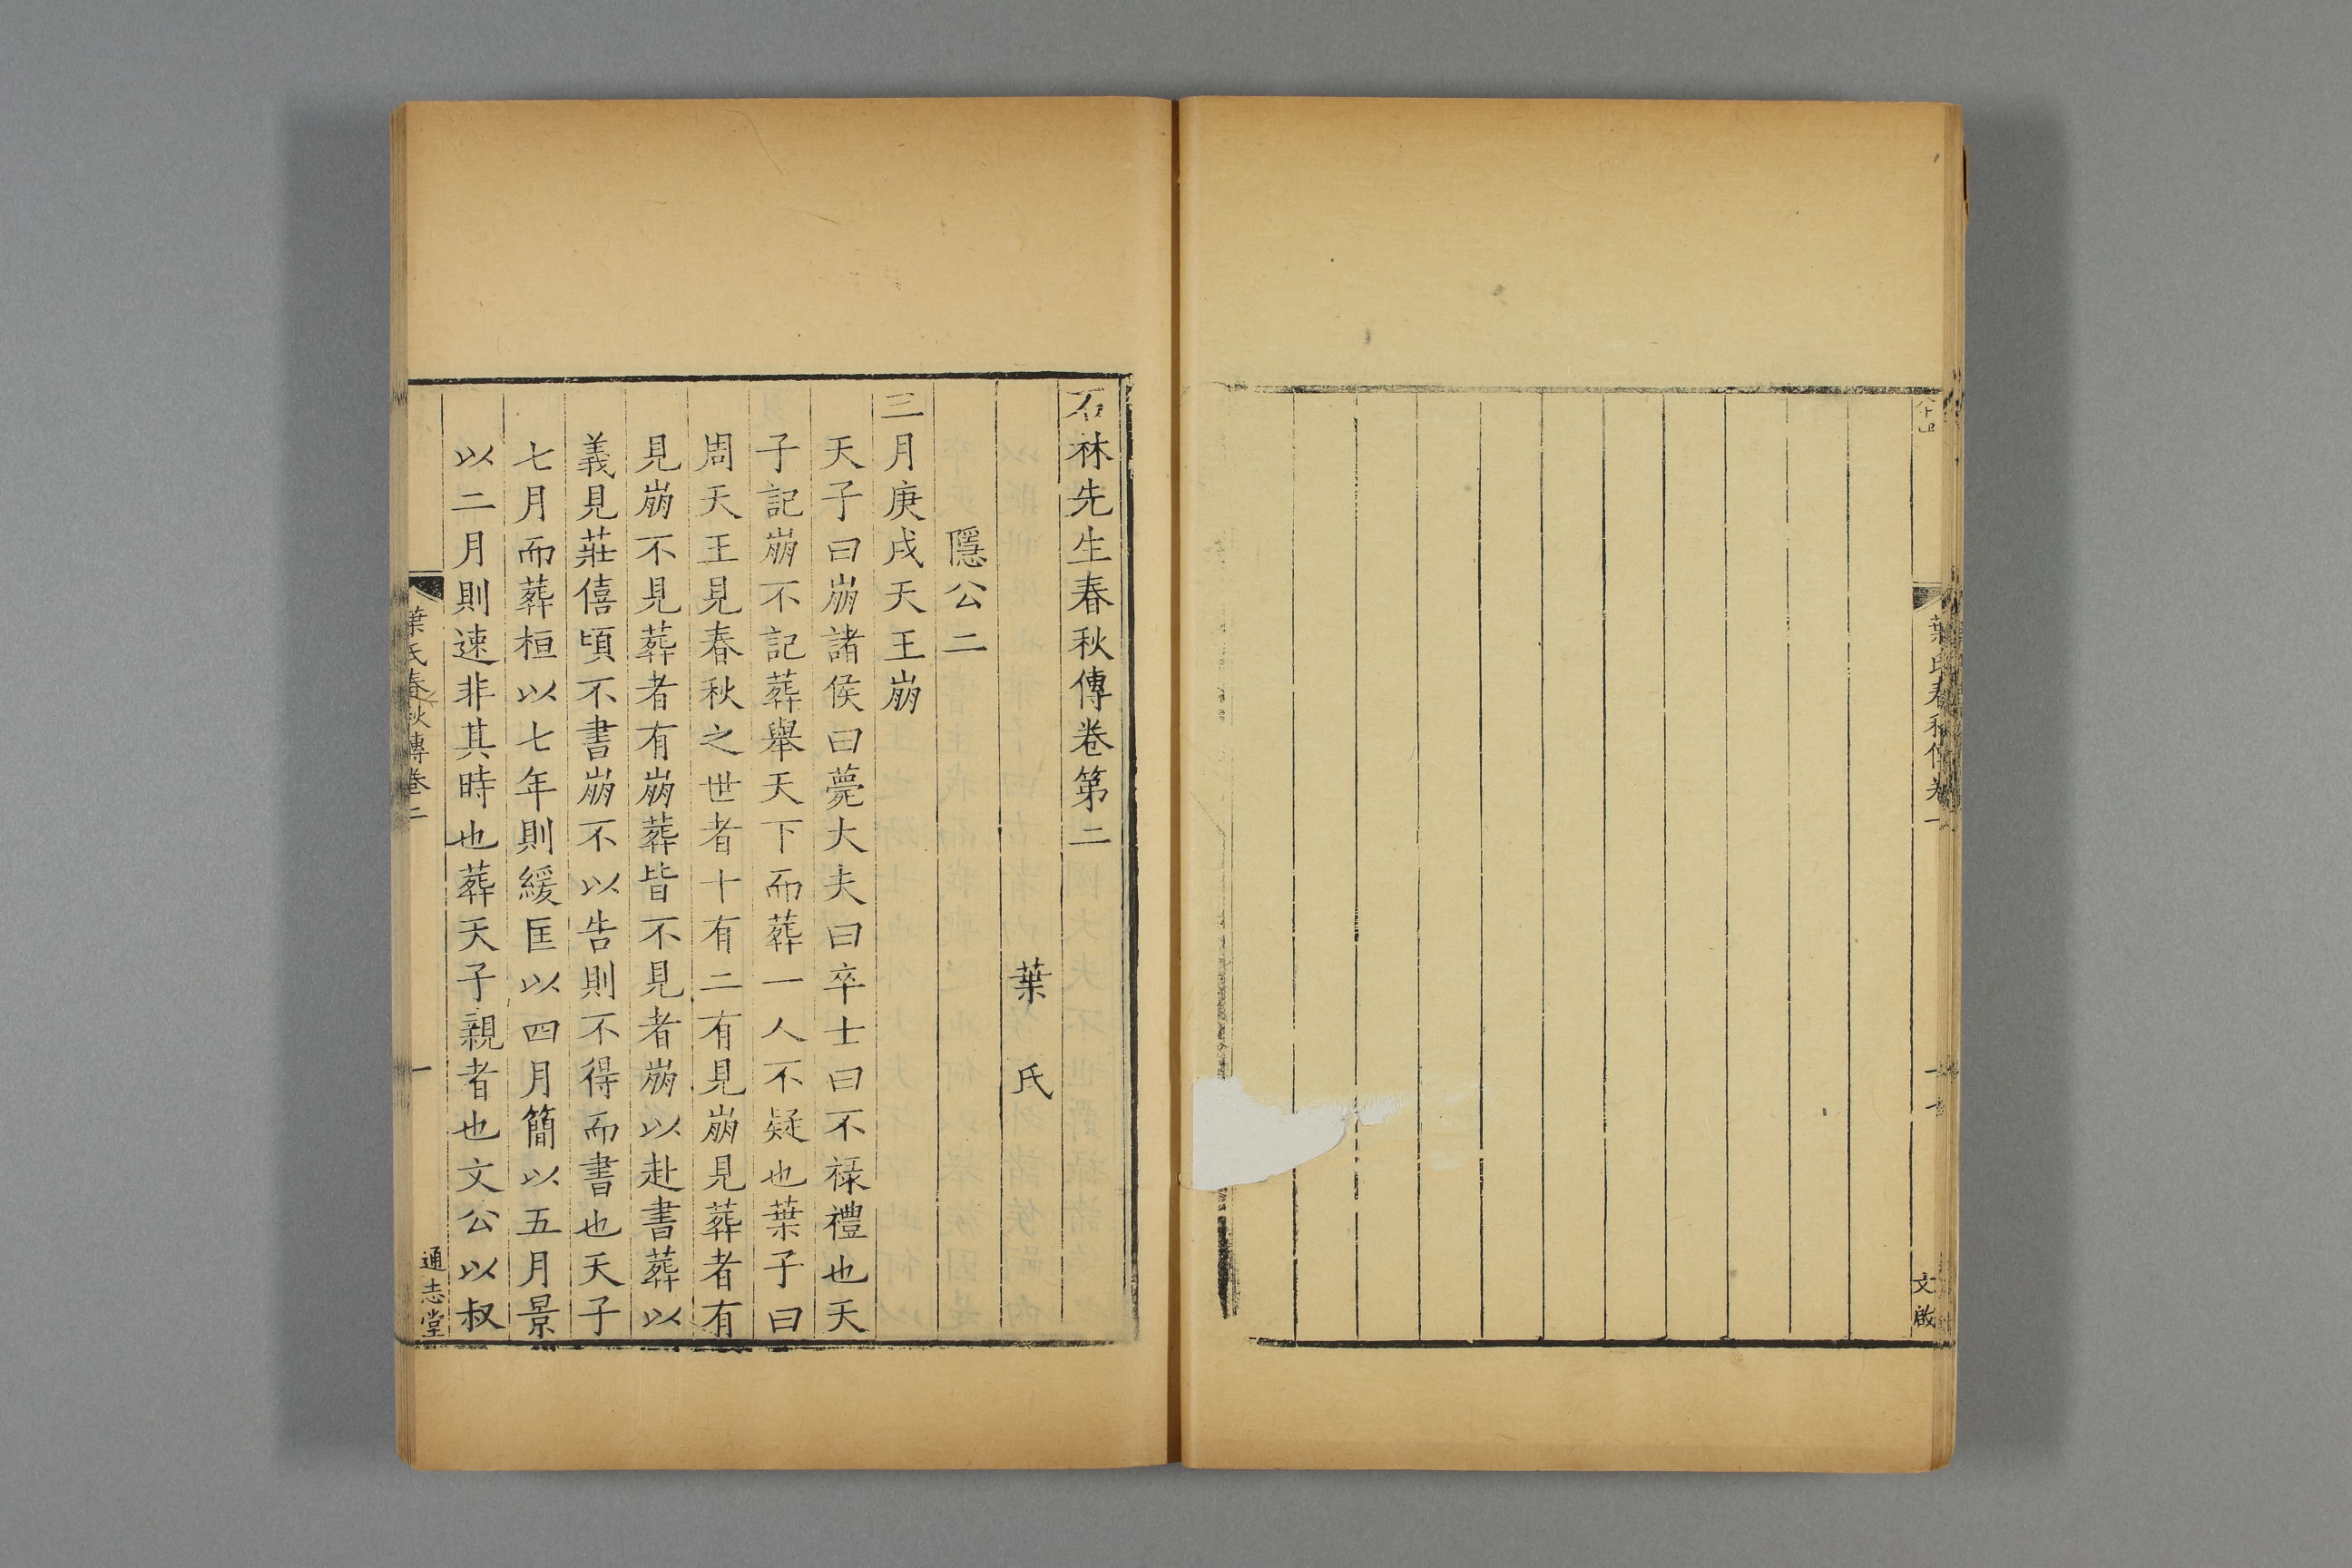 葉氏春秋傳卷一
文啟
石林先生春秋傳卷第二
葉氏
隱公二
三月庚戌天王崩
天子曰崩諸侯曰薨大夫曰卒士曰不禄禮也天
子記崩不記葬舉天下而葬一人不疑也葉子曰
周天王見春秋之世者十有二有見崩見葬者有
見崩不見葬者有崩葬皆不見者崩以赴書葬以
義見莊僖頃不書崩不以告則不得而書也天子
七月而葬桓以七年則緩匡以四月簡以五月景
以二月則速非其時也葬天子親者也文公以叔
葉氏春秋傳卷二
一
通志堂